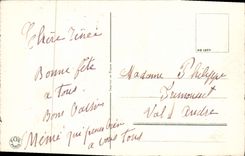 Chère Aimée
Bonne fête
à tous.
Bons Baisers
Mémé qui pense bien
à vous tous
Madame Philippe
Tremouet
Val André